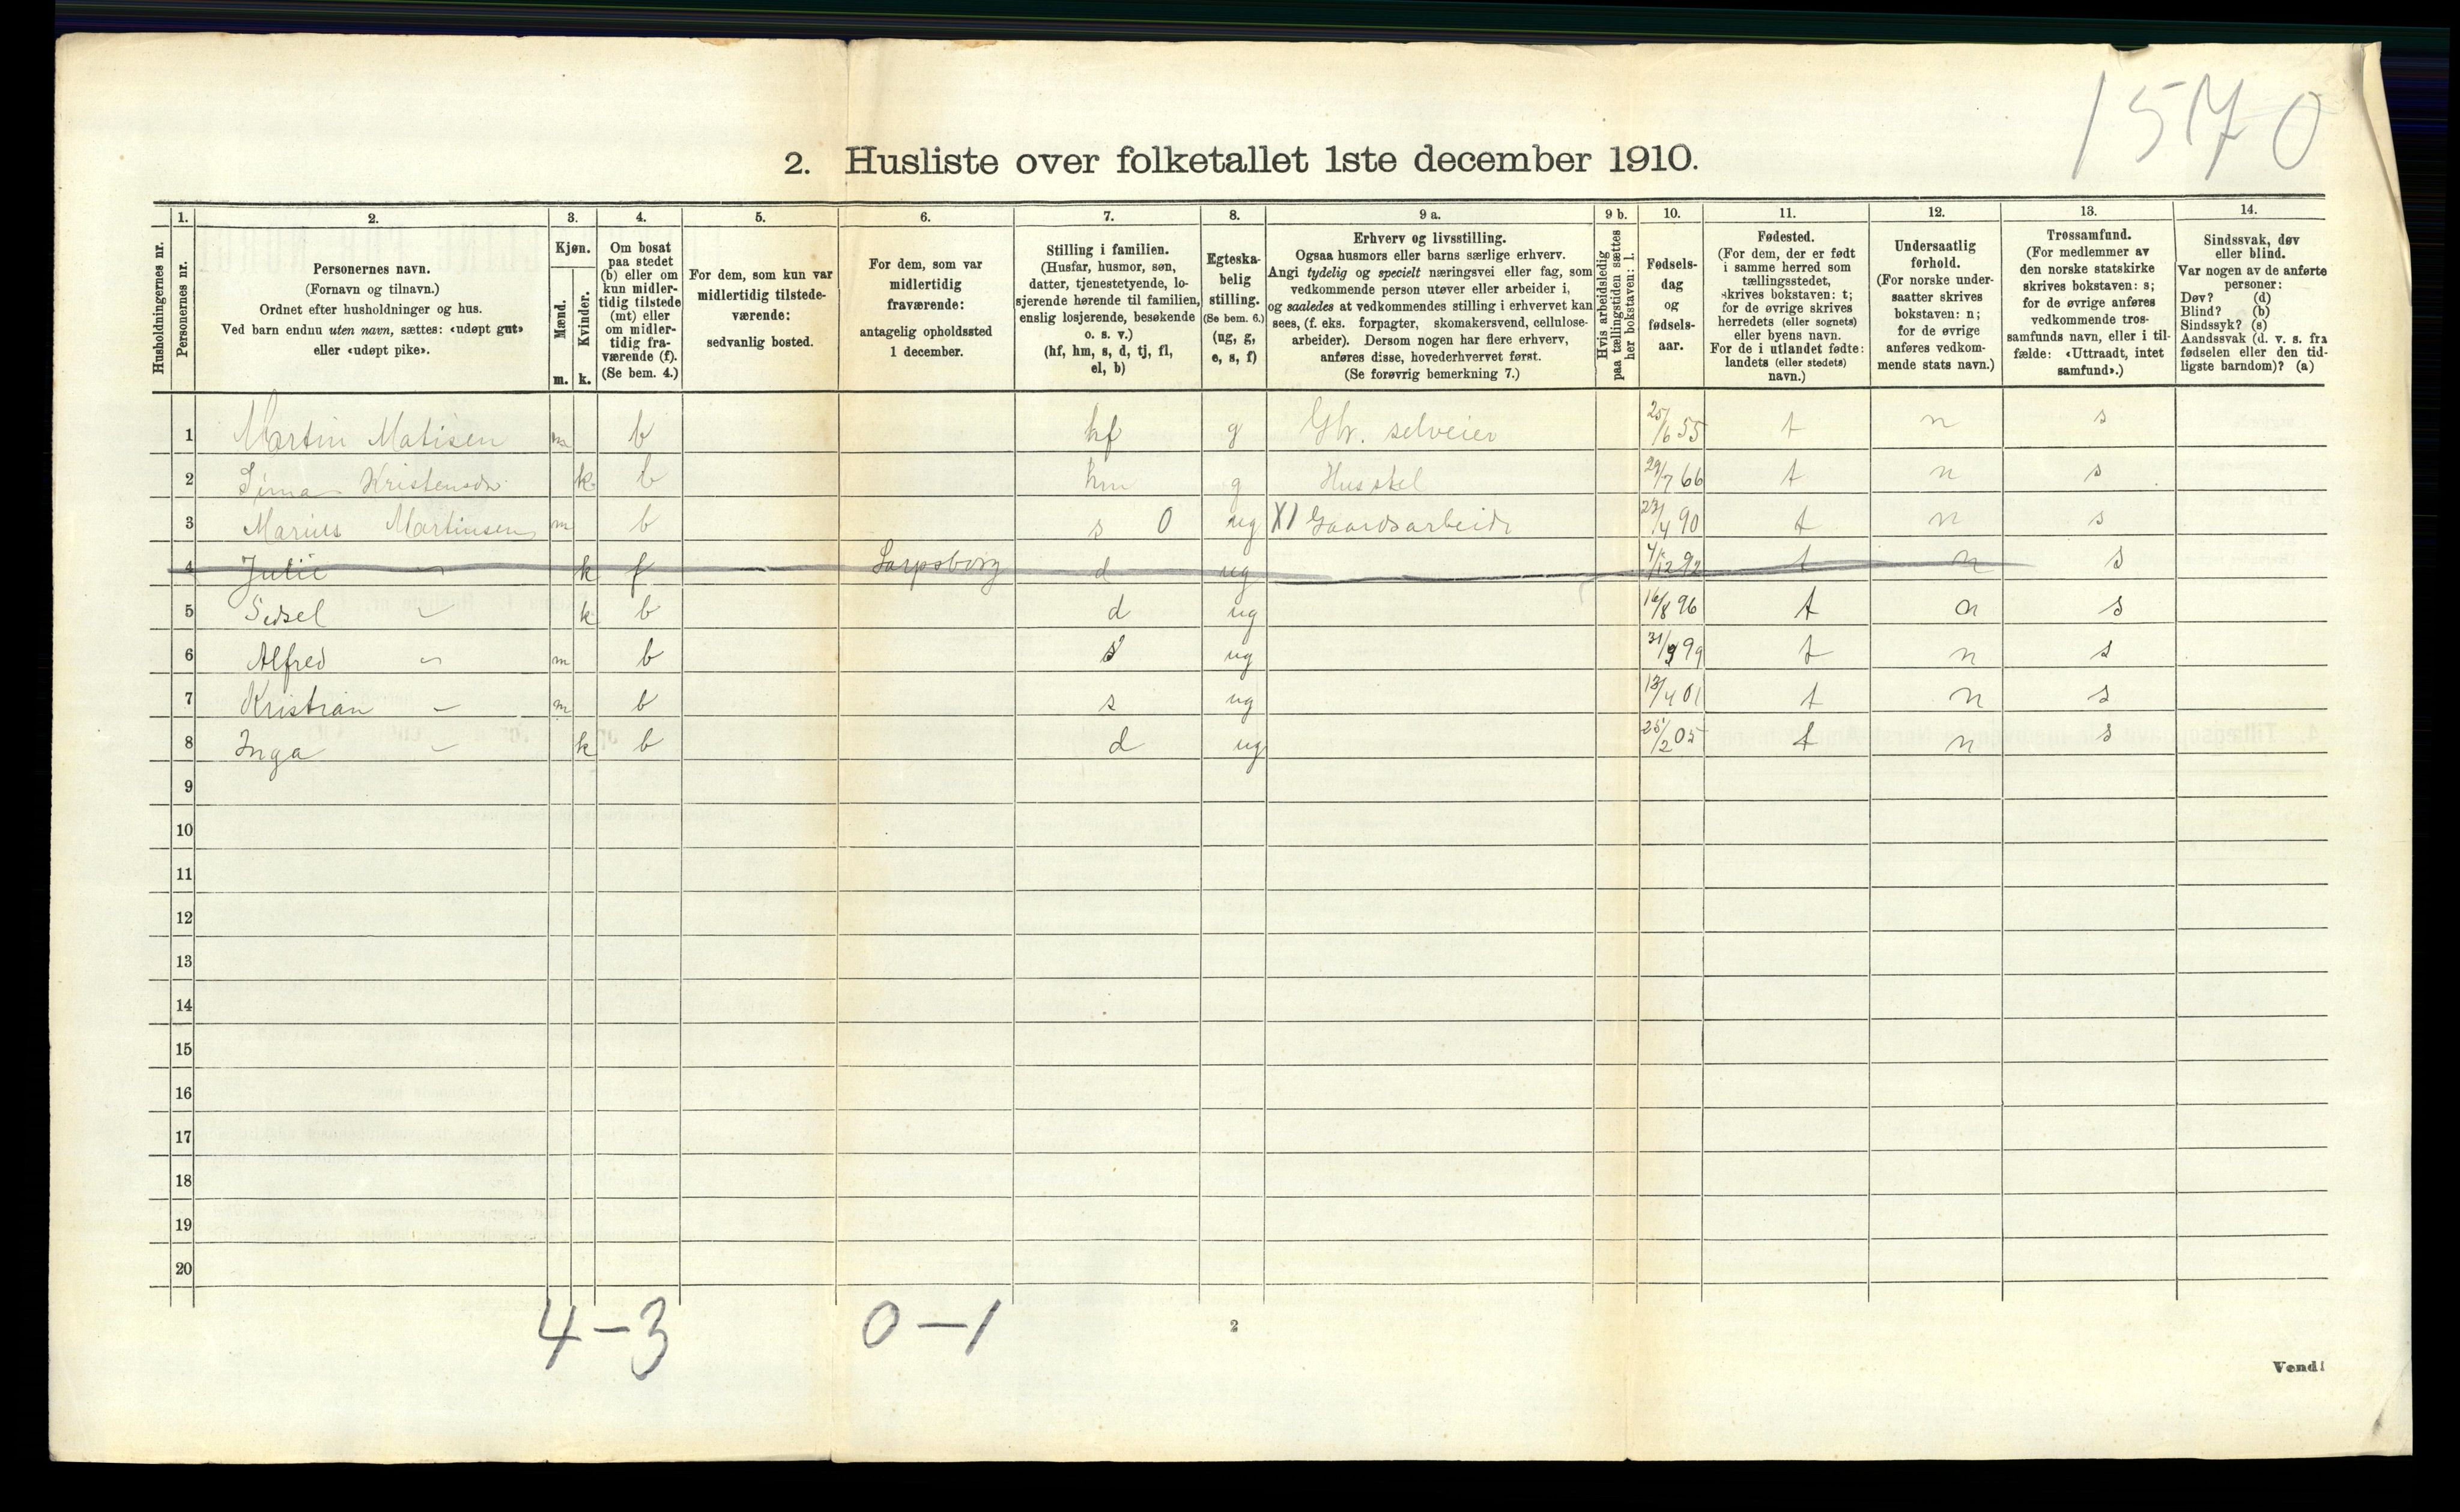 1570
2. Husliste over folketallet 1ste december 1910.
Husholdningernes nr.
1. Personernes nr.
2. Personernes navn.
(Fornavn og tilnavn.)
Ordnet efter husholdninger og hus.
Ved barn endnu uten navn, sættes: «udøpt gut»
eller «udøpt pike».
3. Kjøn.
Mænd. m.
Kvinder. k.
4. Om bosat
paa stedet
(b) eller om
kun midler-
tidig tilstede
(mt) eller
om midler-
tidig fra-
værende (f).
(Se bem. 4.)
5. For dem, som kun var
midlertidig tilstede-
værende:
sedvanlig bosted.
6. For dem, som var
midlertidig
fraværende:
antagelig opholdssted
1 december.
7. Stilling i familien.
(Husfar, husmor, søn,
datter, tjenestetyende, lo-
sjerende hørende til familien,
enslig losjerende, besøkende
o. s. v.)
(hf, hm, s, d, tj, fl,
el, b)
8. Egteska-
belig
stilling.
(Se bem. 6.)
(ug, g,
e, s, f)
9 a. Erhverv og livsstilling.
Ogsaa husmors eller barns særlige erhverv.
Angi tydelig og specielt næringsvei eller fag, som
vedkommende person utøver eller arbeider i,
og saaledes at vedkommendes stilling i erhvervet kan
sees, (f. eks. forpagter, skomakersvend, cellulose-
arbeider). Dersom nogen har flere erhverv,
anføres disse, hovederhvervet først.
(Se forøvrig bemerkning 7.)
9 b. Hvis arbeidsledig
paa tællingstiden sættes
her bokstaven: l.
10. Fødsels-
dag
og
fødsels-
aar.
11. Fødested.
(For dem, der er født
i samme herred som
tællingsstedet,
skrives bokstaven: t;
for de øvrige skrives
herredets (eller sognets)
eller byens navn.
For de i utlandet fødte:
landets (eller stedets)
navn.)
12. Undersaatlig
forhold.
(For norske under-
saatter skrives
bokstaven: n;
for de øvrige
anføres vedkom-
mende stats navn.)
13. Trossamfund.
(For medlemmer av
den norske statskirke
skrives bokstaven: s;
for de øvrige anføres
vedkommende tros-
samfunds navn, eller i til-
fælde: «Uttraadt, intet
samfund».)
14. Sindssvak, døv
eller blind.
Var nogen av de anførte
personer:
Døv? (d)
Blind? (b)
Sindssyk? (s)
Aandssvak (d. v. s. fra
fødselen eller den tid-
ligste barndom)? (a)
1 Martin Matisen m b hf g Gbr. selveier 25/6 55 t n s
2 Kristensdr. k b hm g Husstel 29/7 66 t n s
3 Marius Martinsen m b s 0 ug X1 Gaardsarbeide 23/4 90 t n s
4 Julie — k f Sarpsborg d ug 4/12 92 t n s
5 Sidsel — k b d ug 16/8 96 t n s
6 Alfred — m b s ug 31/9 99 t n s
7 Kristian — m b s ug 13/4 01 t n s
8 Inga — k b d ug 25/2 05 t n s
9
10
11
12
13
14
15
16
17
18
19
20
4-3 0-1
2
Vend!